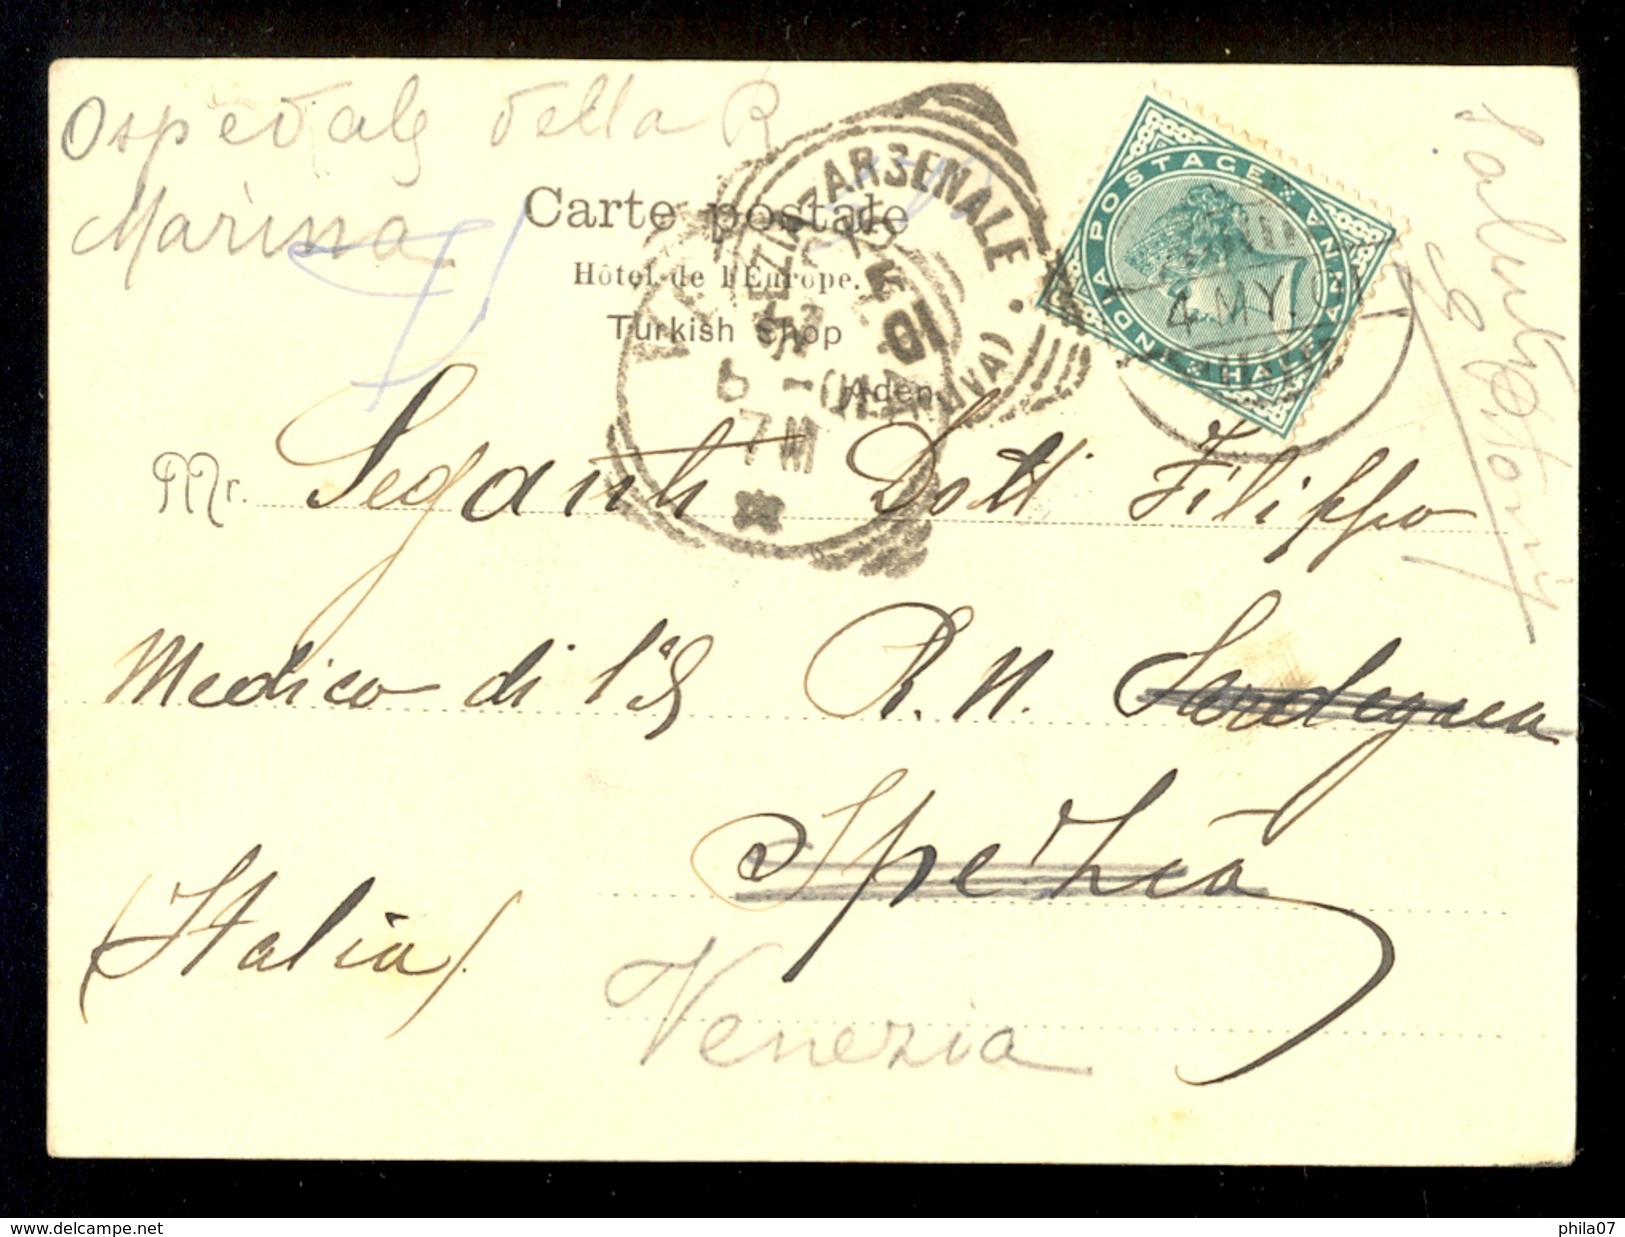 Ospedale della R
Marina
Carte postale
Hôtel de l'Europe.
Turkish Shop
Aden
ARSENALE
01
INDIA POSTAGE
HALF ANNA
4 MY. 0
Mr. Seganti Dott Filippo
Medico di 1ª R. N. Sardegna
Spezia
(Italia)
Venezia
Saluti
phila07